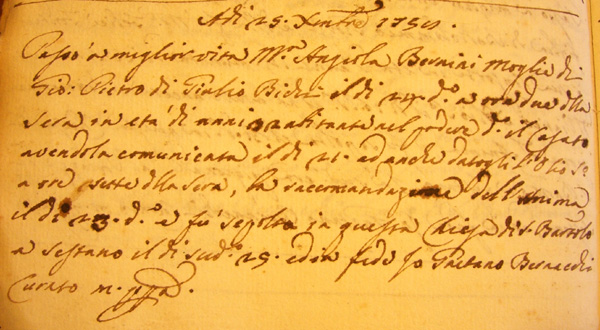 Adi 25. Xmbre 1750.
Passò a miglior vita Mª Angiola Bernini Moglie di
Gio: Pietro di Giulio Bichi il di 24. dº a ore due della
sera in età di anni abitante nel podere dº il Casato
avendola comunicata il di 21. ed anche datogli l'Olio Sº
a ore sette della sera, la raccomandazione dell'Anima
il di 23. dº e fù sepolta in questa Chiesa di S. Bartolo
a Sestano il di sudº 25. ed in fede Io Gaetano Bernacchi
Curato m. ppa.